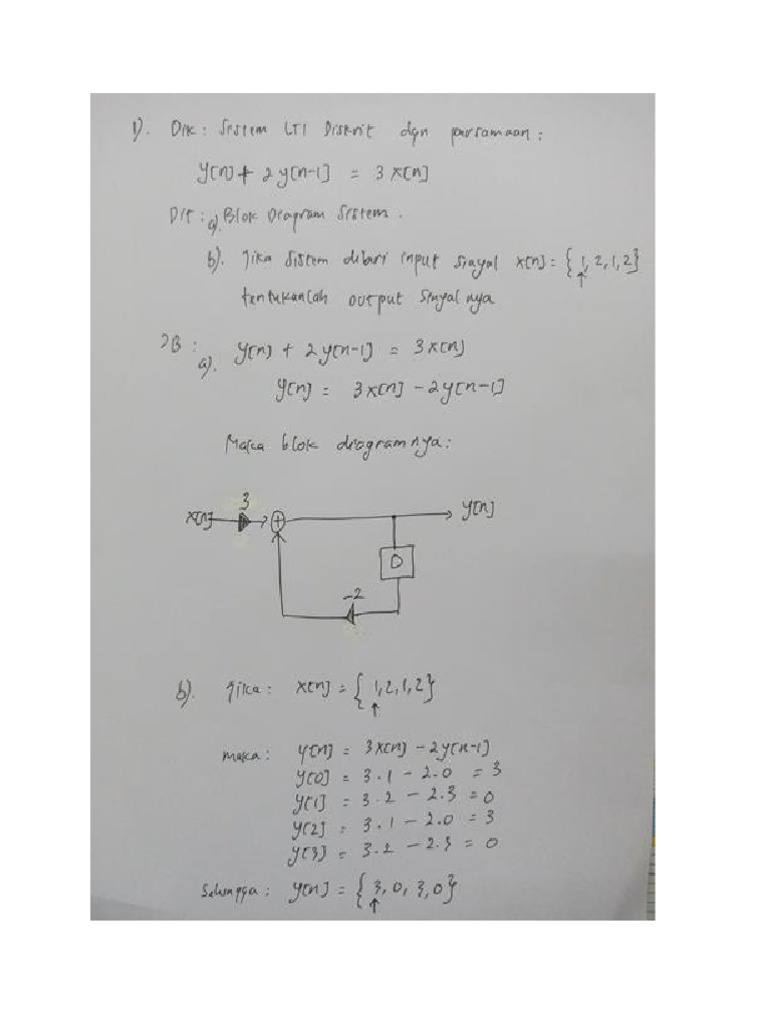 1). Dik : Sistem LTI Diskrit dgn persamaan :
y[n] + 2y[n-1] = 3x[n]
Dit : a). Blok Diagram Sistem.
b). Jika sistem diberi input sinyal x[n] = {1, 2, 1, 2}
↑
tentukanlah output sinyalnya
JB :
a). y[n] + 2y[n-1] = 3x[n]
y[n] = 3x[n] - 2y[n-1]
Maka blok diagramnya :
3
x[n] + y[n]
D
-2
b). Jika : x[n] = {1, 2, 1, 2}
↑
maka : y[n] = 3x[n] - 2y[n-1]
y[0] = 3.1 - 2.0 = 3
y[1] = 3.2 - 2.3 = 0
y[2] = 3.1 - 2.0 = 3
y[3] = 3.2 - 2.3 = 0
Sehingga : y[n] = {3, 0, 3, 0}
↑